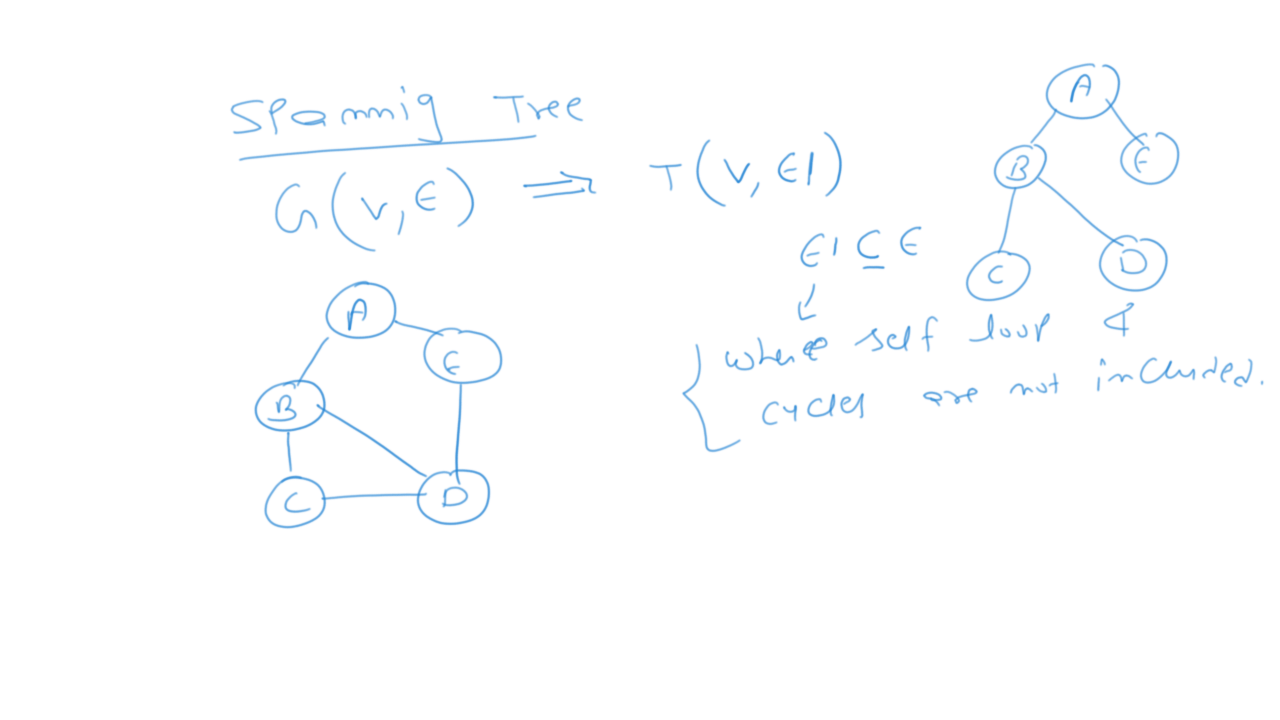 Spannig Tree
G(V,E) ⇒ T(V,E')
E' ⊆ E
where self loop &
cycles are not included.
A
E
B
C
D
A
B
E
C
D